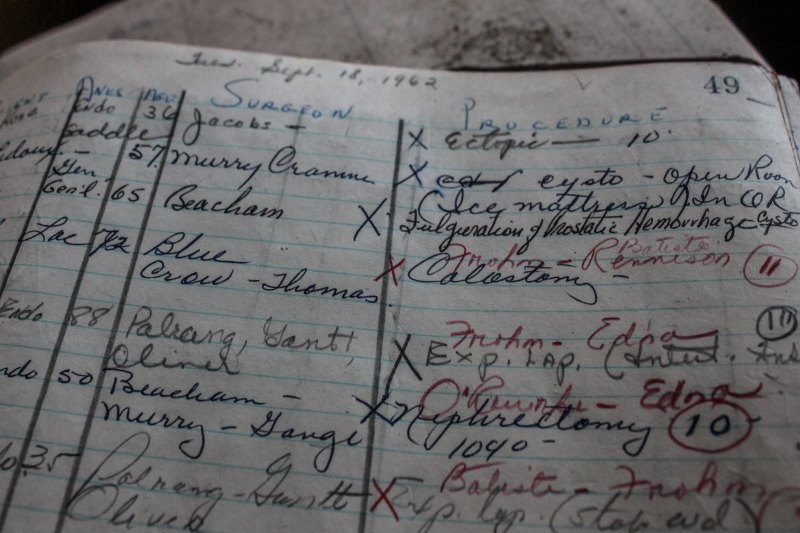 Tues. Sept. 18, 1962
49
Anes Age Surgeon Procedure
Endo 36 Jacobs - X Ectopic - 10
Saddle
57 Murry Cramm X cysto - Open Room
Gen (Ice mattress) In OR
Gen'l. 65 Beacham X Fulguration of Prostatic Hemorrhage Cysto
Batiste
Frohm - Rennison 11
Loc 72 Blue X Colostomy -
Crow - Thomas
Frohm - Edna 11
Endo 88 Palrang, Gantt, X Exp. Lap. (Intest.
Oliver
- Edna
50 Beacham - X Nephrectomy 10
Murry - Gange 1040 -
Batiste - Frohm
35 Palrang - Gantt X Exp. Lap.
Oliver